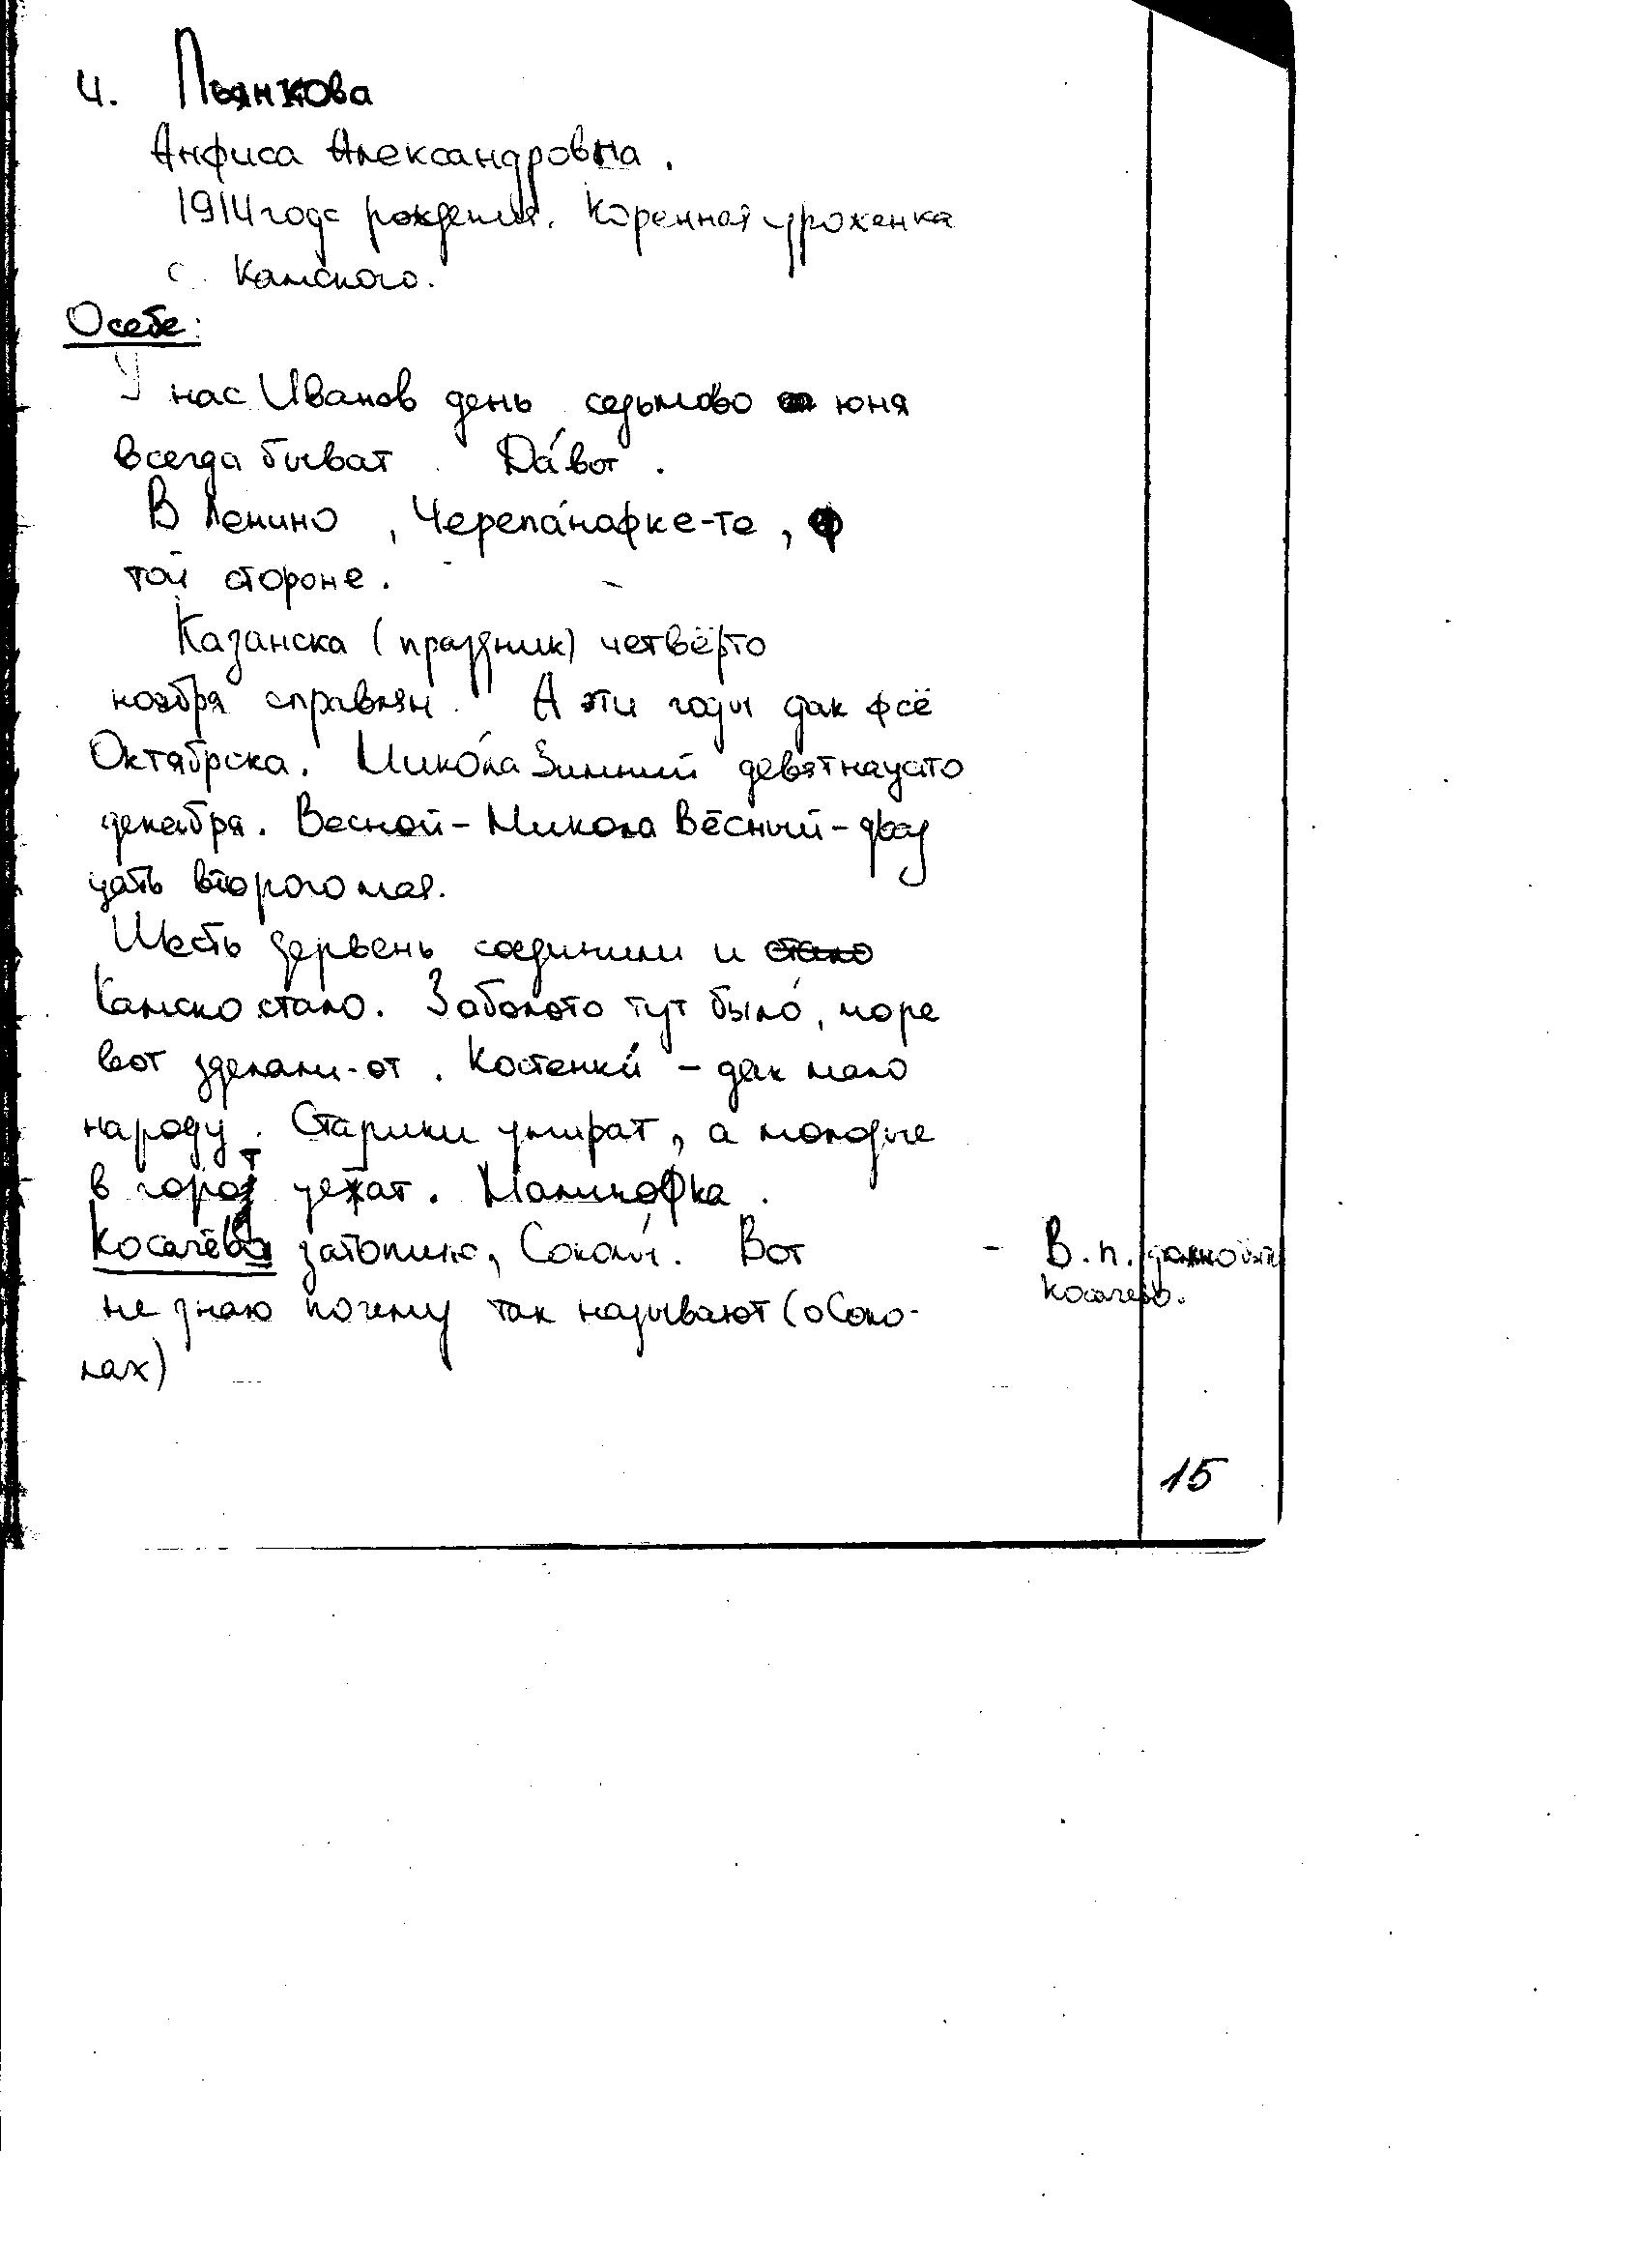 4. Пьянкова
Анфиса Александровна.
1914 года рождения. Коренная уроженка
с. Камского.
О себе:
У нас Иванов день седьмово юня
всегда быват. Да́ вот.
В Ленино, Черепа́нафке-те, ф
той стороне.
Казанска (праздник) четвёрто
ноября справлям. А эти годы дак фсё
Октябрска. Мико́ла Зимний девятнацато
декабря. Весной - Микола Ве́сный - двад
цать второго мая.
Шесть дервень соединили и стало
Камско стало. Заболото тут было́, море
вот зделали-от. Костенки́ - дак мало
народу. Старики умират, а молодые
в горот уежат. Малинофка.
Косачёво затопило, Соколы́. Вот
- В.п. должно быть
Косачево.
не знаю почему так называют (о Соко-
лах)
15